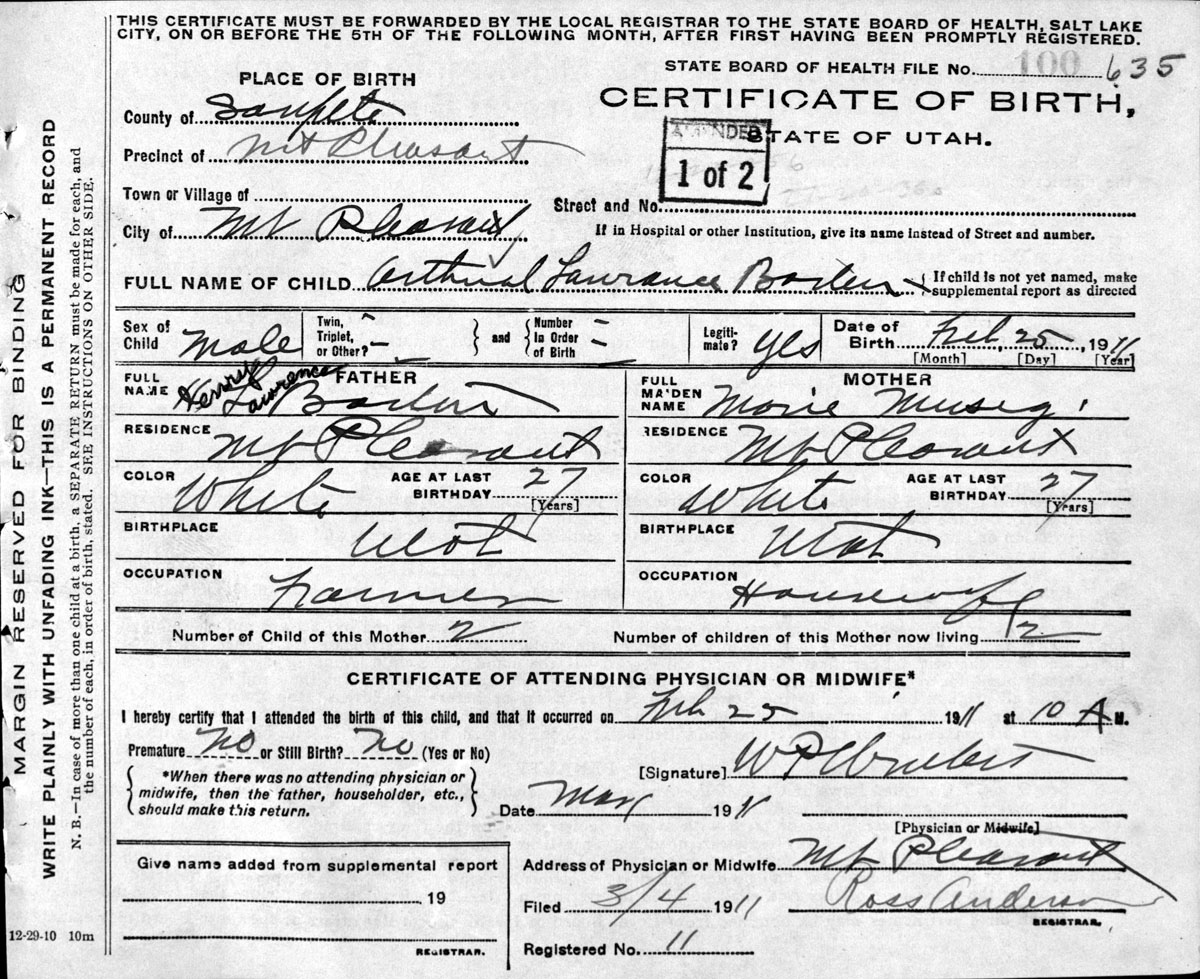 THIS CERTIFICATE MUST BE FORWARDED BY THE LOCAL REGISTRAR TO THE STATE BOARD OF HEALTH, SALT LAKE
CITY, ON OR BEFORE THE 5TH OF THE FOLLOWING MONTH, AFTER FIRST HAVING BEEN PROMPTLY REGISTERED.
MARGIN RESERVED FOR BINDING
WRITE PLAINLY WITH UNFADING INK—THIS IS A PERMANENT RECORD
N. B.—In case of more than one child at a birth, a SEPARATE RETURN must be made for each, and
the number of each, in order of birth, stated. SEE INSTRUCTIONS ON OTHER SIDE.
PLACE OF BIRTH
STATE BOARD OF HEALTH FILE No. 100 635
County of Sanpete
CERTIFICATE OF BIRTH,
STATE OF UTAH.
Precinct of Mt Pleasant
AMENDED
1 of 2
Town or Village of
Street and No.
City of Mt Pleasant
If in Hospital or other Institution, give its name instead of Street and number.
FULL NAME OF CHILD Lawrance
If child is not yet named, make
supplemental report as directed
Sex of Child Male
Twin, Triplet, or Other? —
and
Number In Order of Birth —
Legitimate? yes
Date of Birth Feb, 25, 1911
[Month] [Day] [Year]
FULL NAME FATHER Henry Lawrence
FULL MAIDEN NAME MOTHER
RESIDENCE Mt Pleasant
RESIDENCE Mt Pleasant
COLOR White AGE AT LAST BIRTHDAY 27 [Years]
COLOR White AGE AT LAST BIRTHDAY 27 [Years]
BIRTHPLACE Utah
BIRTHPLACE Utah
OCCUPATION Farmer
OCCUPATION Housewife
Number of Child of this Mother 2 Number of children of this Mother now living 2
CERTIFICATE OF ATTENDING PHYSICIAN OR MIDWIFE*
I hereby certify that I attended the birth of this child, and that it occurred on Feb 25 1911 at 10 A M.
Premature No or Still Birth? No (Yes or No)
*When there was no attending physician or
midwife, then the father, householder, etc.,
should make this return.
[Signature]
Date Mar 1911
[Physician or Midwife]
Give name added from supplemental report
Address of Physician or Midwife Mt Pleasant
19
Filed 3/4 1911 Ross Anderson
REGISTRAR.
Registered No. 11
REGISTRAR.
12-29-10 10m